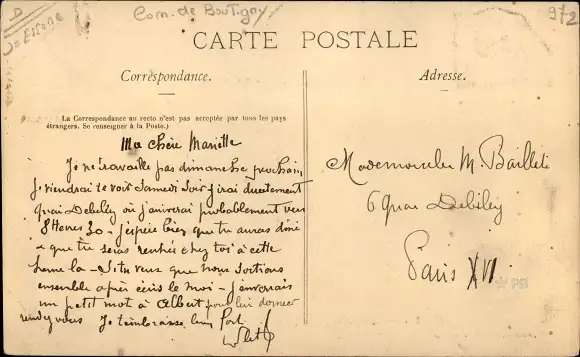 D = Essone
Com. de Boutigny
972
CARTE POSTALE
Correspondance.
La Correspondance au recto n'est pas acceptée par tous les pays
étrangers. Se renseigner à la Poste.)
Ma chère Mariette
Je ne travaille pas dimanche prochain,
je viendrai te voir Samedi soir j'irai directement
quai Debilly où j'arriverai probablement vers
8 heures 30 - j'espère bien que tu auras diné
& que tu seras rentrée chez toi à cette
heure là - Si tu veux que nous sortions
ensemble après écris le moi - j'enverrais
un petit mot à Albert pour lui donner
rendez vous Je t'embrasse bien fort
Adresse.
Mademoiselle M. Baillet
6 Quai Debilly
Paris XVI
PB